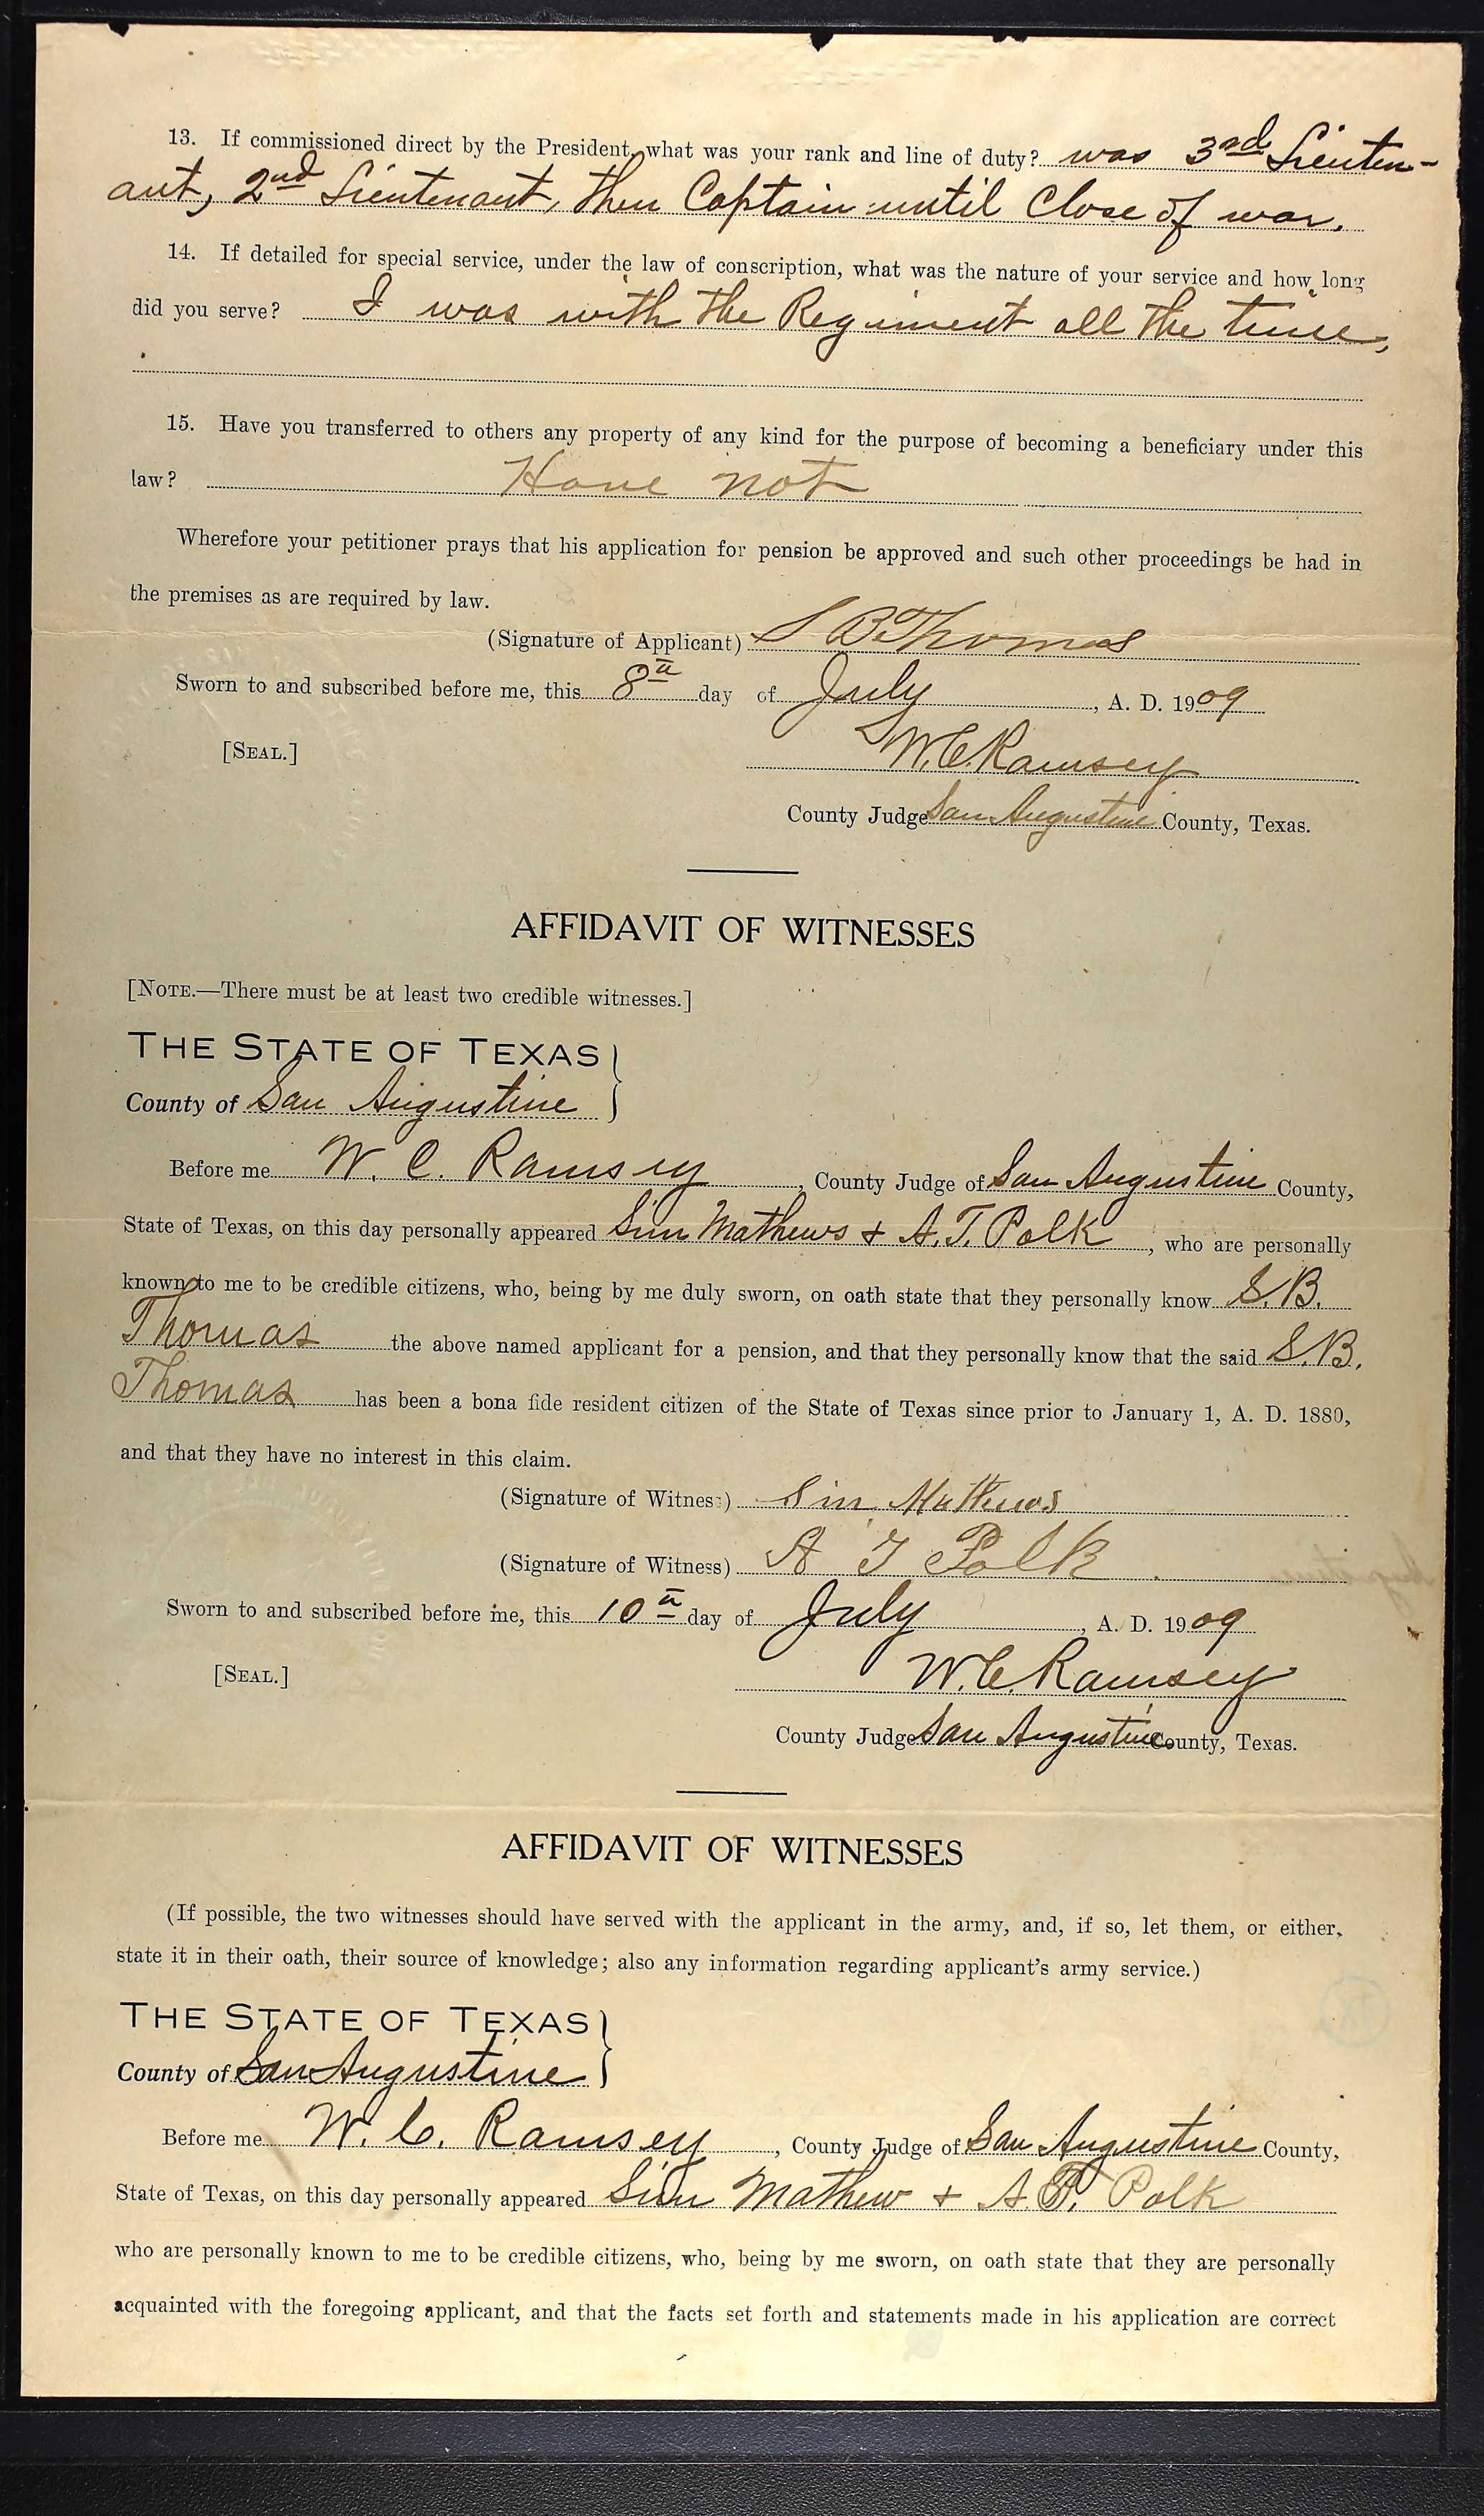 13. If commissioned direct by the President, what was your rank and line of duty? was 3rd Lieuten-
ant, 2nd Lieutenant, then Captain until Close of war.
14. If detailed for special service, under the law of conscription, what was the nature of your service and how long
did you serve? I was with the Regiment all the time,
15. Have you transferred to others any property of any kind for the purpose of becoming a beneficiary under this
law? Have not
Wherefore your petitioner prays that his application for pension be approved and such other proceedings be had in
the premises as are required by law.
(Signature of Applicant) S B Thomas
Sworn to and subscribed before me, this 8th day of July, A. D. 1909
[SEAL.] W. C. Ramsey
County Judge San Augustine County, Texas.
AFFIDAVIT OF WITNESSES
[NOTE.—There must be at least two credible witnesses.]
THE STATE OF TEXAS
County of San Augustine
Before me W. C. Ramsey, County Judge of San Augustine County,
State of Texas, on this day personally appeared Sim Mathews + A. T. Polk, who are personally
known to me to be credible citizens, who, being by me duly sworn, on oath state that they personally know S. B.
Thomas the above named applicant for a pension, and that they personally know that the said S. B.
Thomas has been a bona fide resident citizen of the State of Texas since prior to January 1, A. D. 1880,
and that they have no interest in this claim.
(Signature of Witness) Sim Mathews
(Signature of Witness) A T Polk
Sworn to and subscribed before me, this 10th day of July, A. D. 1909
[SEAL.] W. C. Ramsey
County Judge San Augustine County, Texas.
AFFIDAVIT OF WITNESSES
(If possible, the two witnesses should have served with the applicant in the army, and, if so, let them, or either,
state it in their oath, their source of knowledge; also any information regarding applicant's army service.)
THE STATE OF TEXAS
County of San Augustine
Before me W. C. Ramsey, County Judge of San Augustine County,
State of Texas, on this day personally appeared Sim Mathew + A. T. Polk
who are personally known to me to be credible citizens, who, being by me sworn, on oath state that they are personally
acquainted with the foregoing applicant, and that the facts set forth and statements made in his application are correct